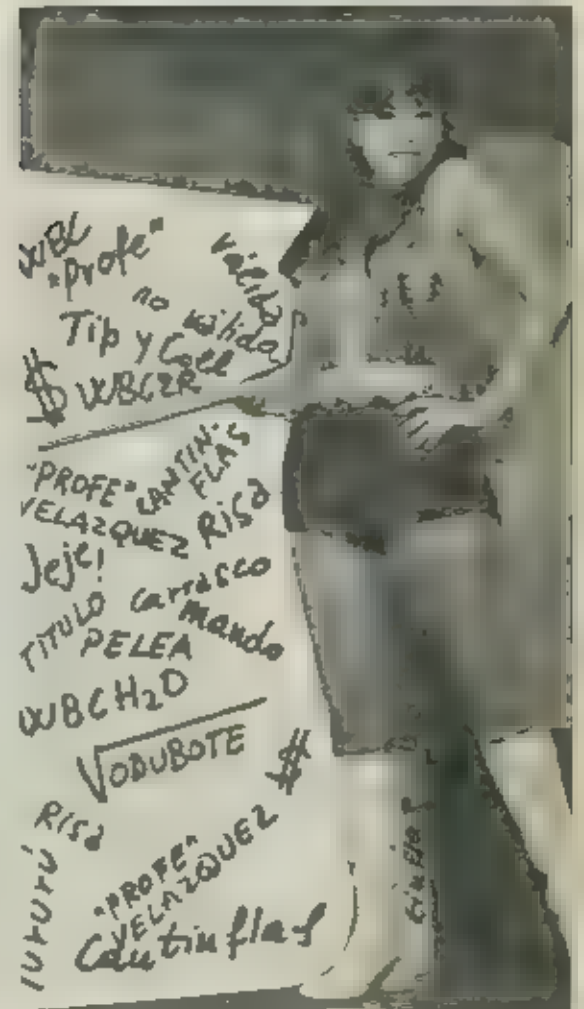 WBC
"Profe"
válida
no válida
Tip y Coll
$ WBCZR
"PROFE" CANTIN-
FLAS
VELAZQUEZ
RISA
Jeje!
TITULO carrasco
PELEA
mando
WBCH2O
VODUBOTE
$
RISA
"PROFE"
VELAZQUEZ
Cantinflas